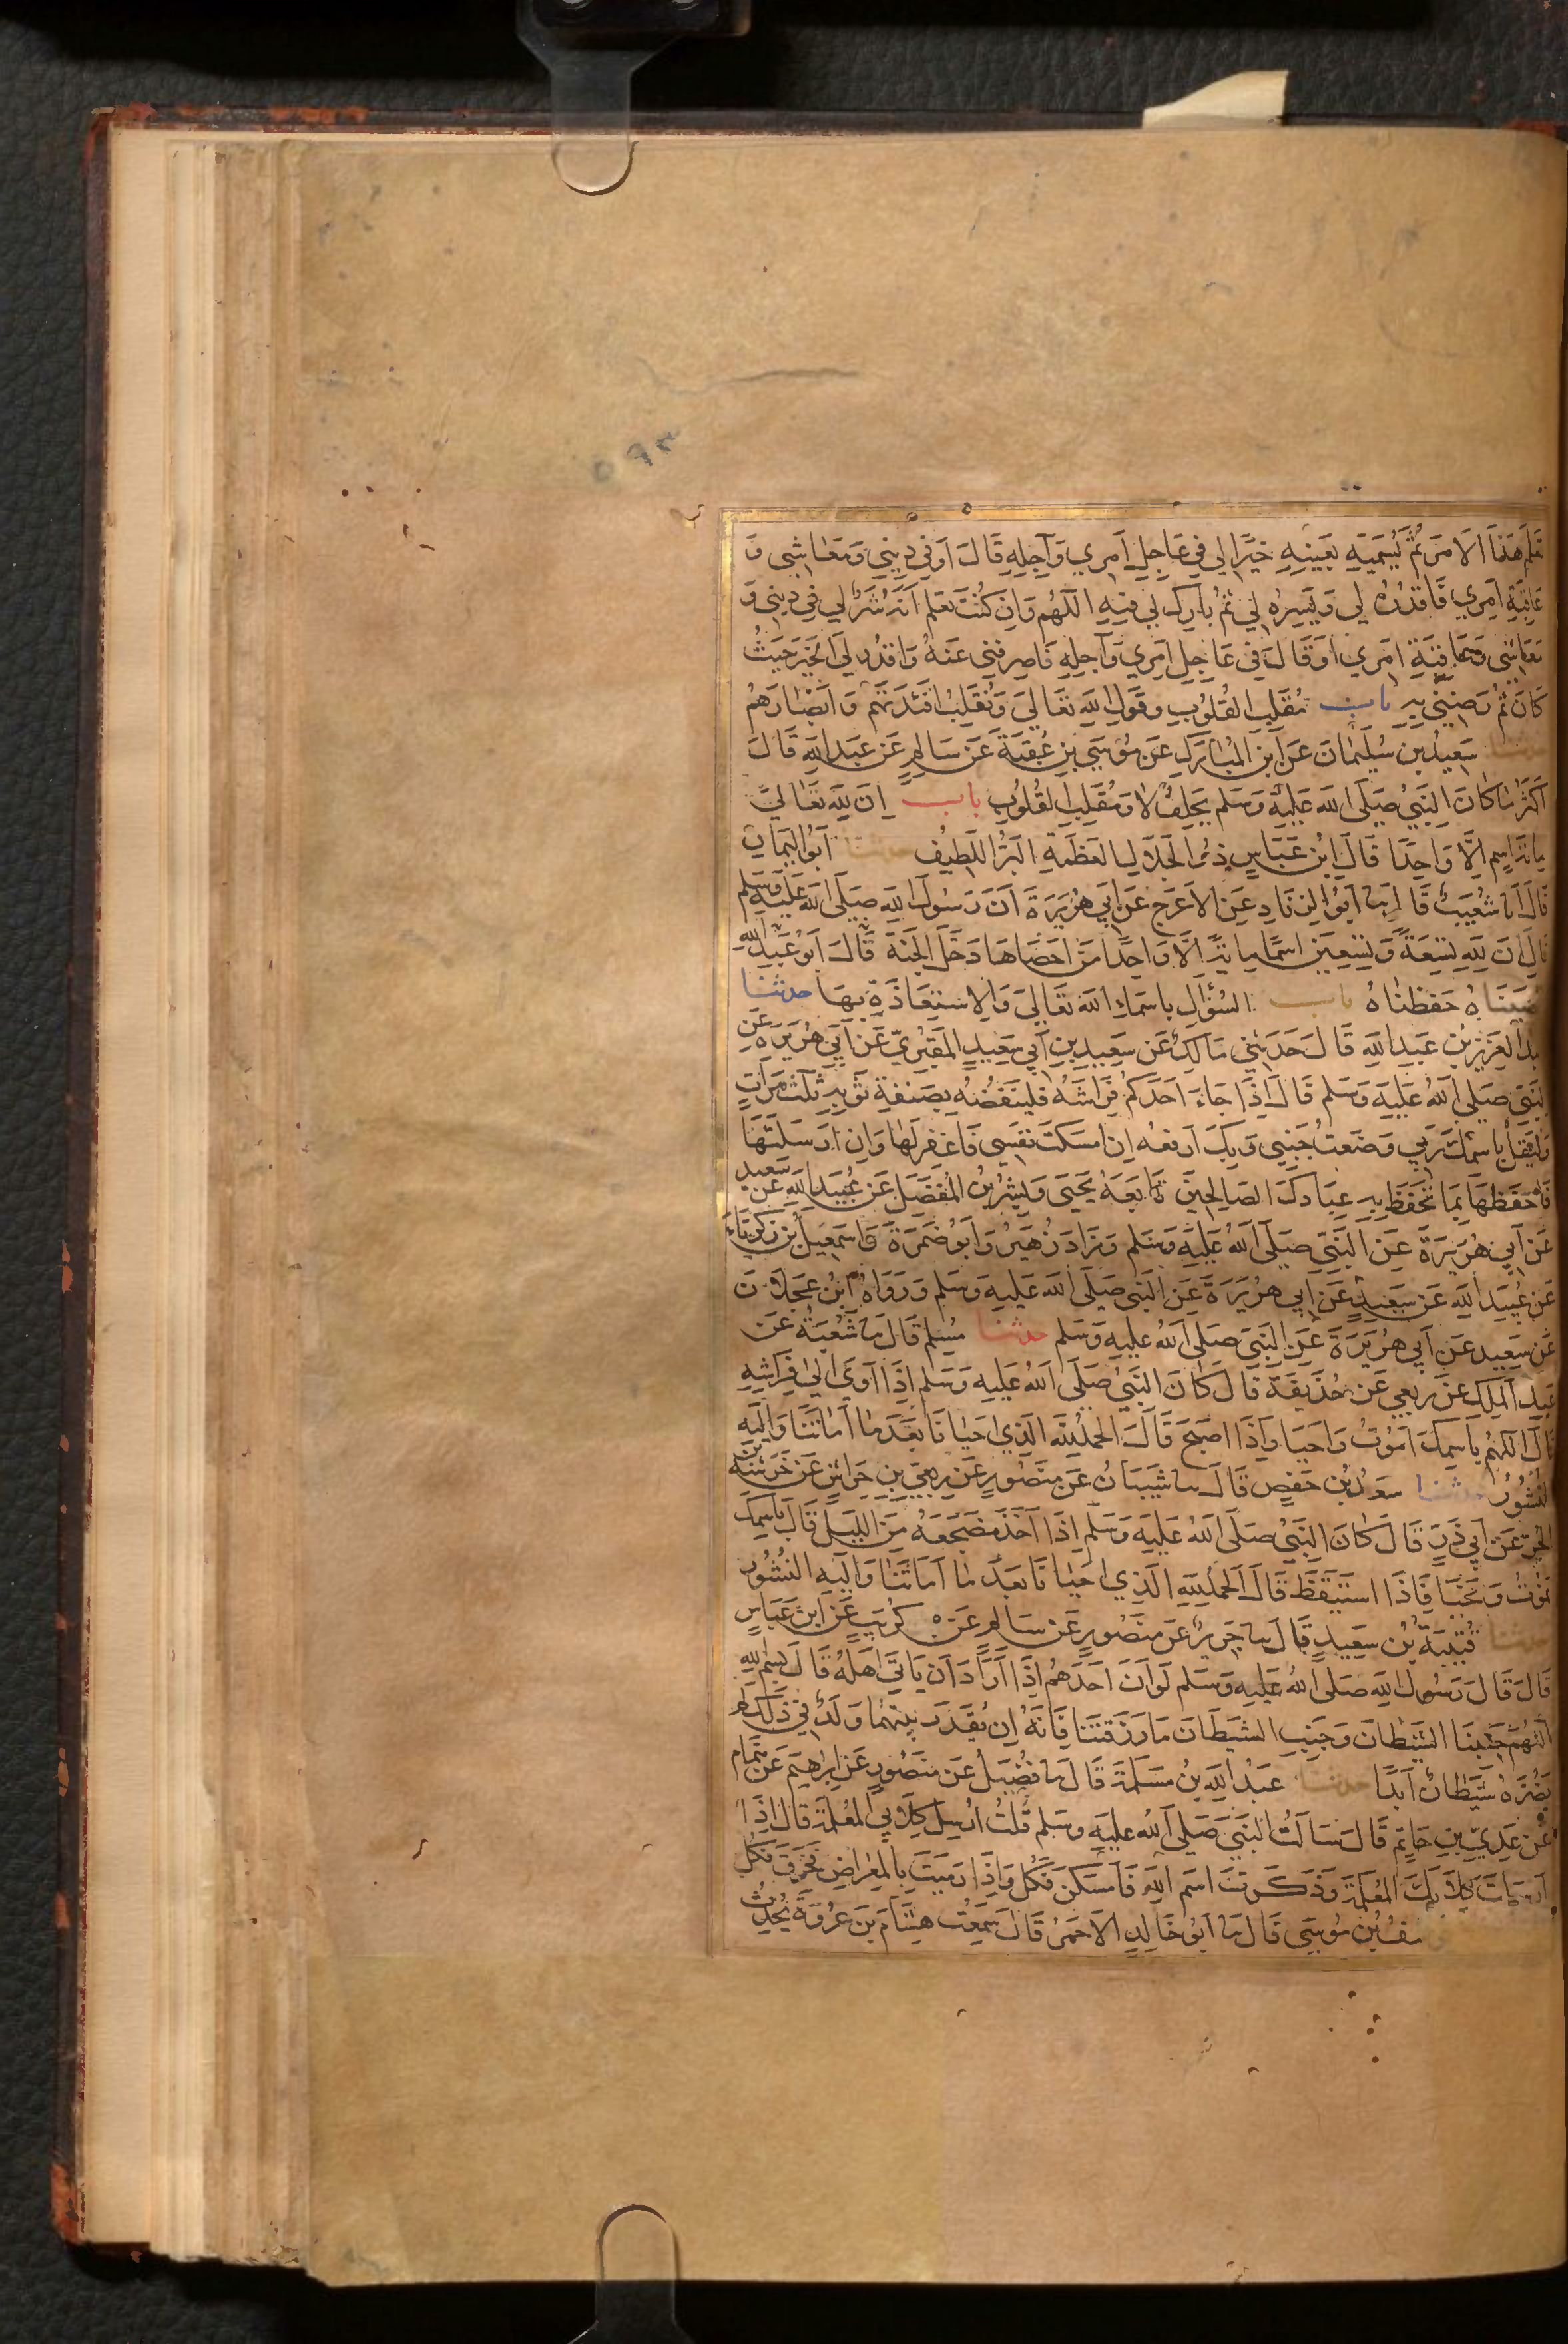 ٥٩٣
تَعلَم هَذا الامرَ ثم يُسَميِه بَعَينِهِ خيرًا لي في عَاجِلِ اَمرِي وَآجِلِهِ قَالَ اَو في دِينِي وَمَعَاشِي وَ
عَاقِبَةِ اَمرِي فَاقدُرهُ لي وَيَسِرهُ لي ثم بارِك لي فيهِ اللَهُم وَاِن كُنتَ تعلم اَنَهُ شَرٌ لي في دِيني وَ
مَعَاشِي وَعَاقِبَةِ امَرِي اَو قَالَ في عَاجِلِ اَمرِي وَآجِلِهِ فَاصرِفني عَنهُ وَاقدُر لي الخيَرَ حَيثُ
كَانَ ثم رَضِنِي بِهِ باب مُقَلِبِ القُلُوبِ وقَولِ اللهِ تعَالي وَنُقَلِبُ افئدَتهُم وَابصَارَهُم
حدثنا سَعِيدُ بن سُلَيمَانَ عَن ابنِ المبُارَكِ عَن مُوسَي بنِ عُقبَةَ عَن سَالِمٍ عَن عَبدِ اللهِ قَالَ
اكثَرُ ما كَانَ النَبيُ صَلَي اللهُ عَلَيهِ وَسَلم يَحلِفُ لا وَمُقَلِبِ القُلُوبِ باب اِنَ لِلهِ تعَالي
مايَةَ اسِمٍ اِلَّا وَاحِدًا قَالَ ابنُ عَبَاسٍ ذُو الجَلَالِ العَظَمَةِ البَرُّ اللَطِيفُ حدثنا اَبُو اليَمَانِ
قَالَ انا شُعَيبٌ قَالَ نا اَبُو الزِنَادِ عَنِ الاعَرَجِ عَن اَبي هُرَيرَةَ اَنَ رَسُولَ اللهِ صَلَي اللهُ عَلَيهِ وَسَلم
قَالَ اِنَ لِلهِ تِسعَةً وَتِسعِينَ اسمًا مِايةً اِلَّا وَاحِدًا مَن اَحصَاهَا دَخَلَ الجَنَةَ قَالَ اَبُو عَبدِ اللهِ
اَحصَينَاهُ حَفِظنَاهُ باب السُؤَالِ باسماءِ اللهِ تعَالي وَالاِستِعَاذَةِ بهَا حدثنا
عبدُ العَزيزِ بنُ عَبدِ اللهِ قَالَ حَدَثني مَالِكٌ عَن سَعِيدِ بنِ اَبي سَعِيدٍ المَقبُرِيِّ عَن اَبي هُرَيرَة عَنِ
النَبيِ صَلي اللهُ عَلَيهِ وَسَلم قَالَ اِذَا جَاءَ اَحَدُكُم فِرَاشَهُ فليَنفُضهُ بِصَنفةِ ثَوبِهِ ثَلثَ مَرَاتٍ
وَليَقُل باسمكَ رَبي وَضَعتُ جَنبِي وَبِكَ اَرفعُهُ اِن امسَكتَ نفسَي فَاغفر لهَا وَاِن اَرسَلتَهَا
فَاحفَظهَا بِمَا تحفَظُ بِهِ عِبَادَكَ الصَالِحِينَ تابَعَهُ يحَيَي وَبِشرُ بنُ المُفَضَلِ عَن عُبَيدِ اللهِ عَن سَعِيدٍ
عَن اَبي هُرَيرَةَ عَنِ النَبيِّ صَلَي اللهُ عَلَيهِ وَسَلم وَزَادَ زُهَيرٌ وَاَبُو ضَمرَةَ وَاسمَعِيلُ بنُ زَكَرِيَاءَ
عَن عُبَيدِ اللهِ عَن سَعِيدٍ عَن اَبي هُرَيرَةَ عَنِ النَبي صَلي اللهُ عَلَيهِ وَسَلم وَرَوَاهُ ابنُ عَجلَانَ
عَن سَعِيدٍ عَن اَبي هُرَيرَةَ عَنِ النَبيِ صَلي اللهُ عليهِ وَسَلم حدثنا مُسلِم قَالَ نا شُعبَةُ عَن
عَبدِ المَلِكِ عَن رِبعِي عَن حُذَيفَةَ قَالَ كَانَ النَبيُ صَلَي اللهُ عَلَيهِ وَسَلم اِذَا اَوَي اِلي فِرَاشِهِ
قَالَ اللَهُم بِاسمِكَ اَمُوتُ وَاَحيَا وَاِذَا اصبَحَ قَالَ الحَمدُ لِلَّهِ الَذِي احيَانَا بَعَدَ ما اَماتَنَا وَاِلَيهِ
النُشُورُ حدثنا سعدُ بُن حَفصٍ قَالَ نا شَيبَانُ عَن مَنصُورٍ عَن رِبعِيِّ بنِ حِرَاشٍ عَن خَرَشَةَ بنِ
الحُرِ عَن اَبي ذَرٍ قَالَ كَانَ النَبيُ صَلَي اللهُ عَلَيهِ وَسَلَم اِذَا اَخَذَ مَضجَعَهُ مِنَ اللَيلِ قَالَ باسمِكَ
نَمُوتُ وَنَحيَا فَاِذَا استَيقَظَ قَالَ اَلحَمدُ لِلهِ الَذِي احيَانَا بَعدَ ما اَمَاتَنَا وَاِلَيهِ النُشُورُ
حدثنا قُتَيبَةُ بُن سَعِيدٍ قَالَ نا جَرِيرٌ عَن مَنصُورٍ عَن سَالِمٍ عَن كُرَيبٍ عَنِ ابنِ عَبَاسٍ
قَالَ قَالَ رَسُولُ اللهِ صَلي اللهُ عَلَيهِ وَسَلم لَو اَنَ اَحَدَهُم اِذَا اَرَادَ اَن يَاتيَ اَهلَهُ قَالَ بِسمِ اللهِ
اللَهُمَّ جَنِبنَا الشَيطَانَ وَجَنِبِ الشَيطَانَ مَا رَزَقتَنَا فَاِنَهُ اِن يُقَدَر بَينَهُمَا وَلَدٌ في ذَلكَ لم
يَضُرَهُ شَيطَانٌ اَبدًا حدثنا عَبدُ اللهِ بنُ مَسلَمَةَ قَالَ نا فُضَيلٌ عَن مَنصُورٍ عَن اِبرهِيمَ عَن هَمَام
عَن عَدِيِّ بنِ حَاتِمٍ قَالَ سَاَلتُ النَبيَ صَلي اللهُ عَليهِ وَسَلم قُلتُ اُرسِلُ كِلَابي المُعَلَمَةَ قَالَ اِذَا
اَرسَلتَ كِلَابَكَ المُعَلَمَةَ وَذَكَرتَ اسمَ اللهِ فَاَمسَكنَ فَكُل وَاِذَا رَمَيتَ بِالمِعرَاضِ فَخَزَقَ فَكُل
يوسفُ بُن مُوسَي قَالَ نا اَبُو خَالِدٍ الاَحمَرُ قَالَ سَمِعتُ هِشَامَ بنَ عُروَةَ يُحَدِثُ